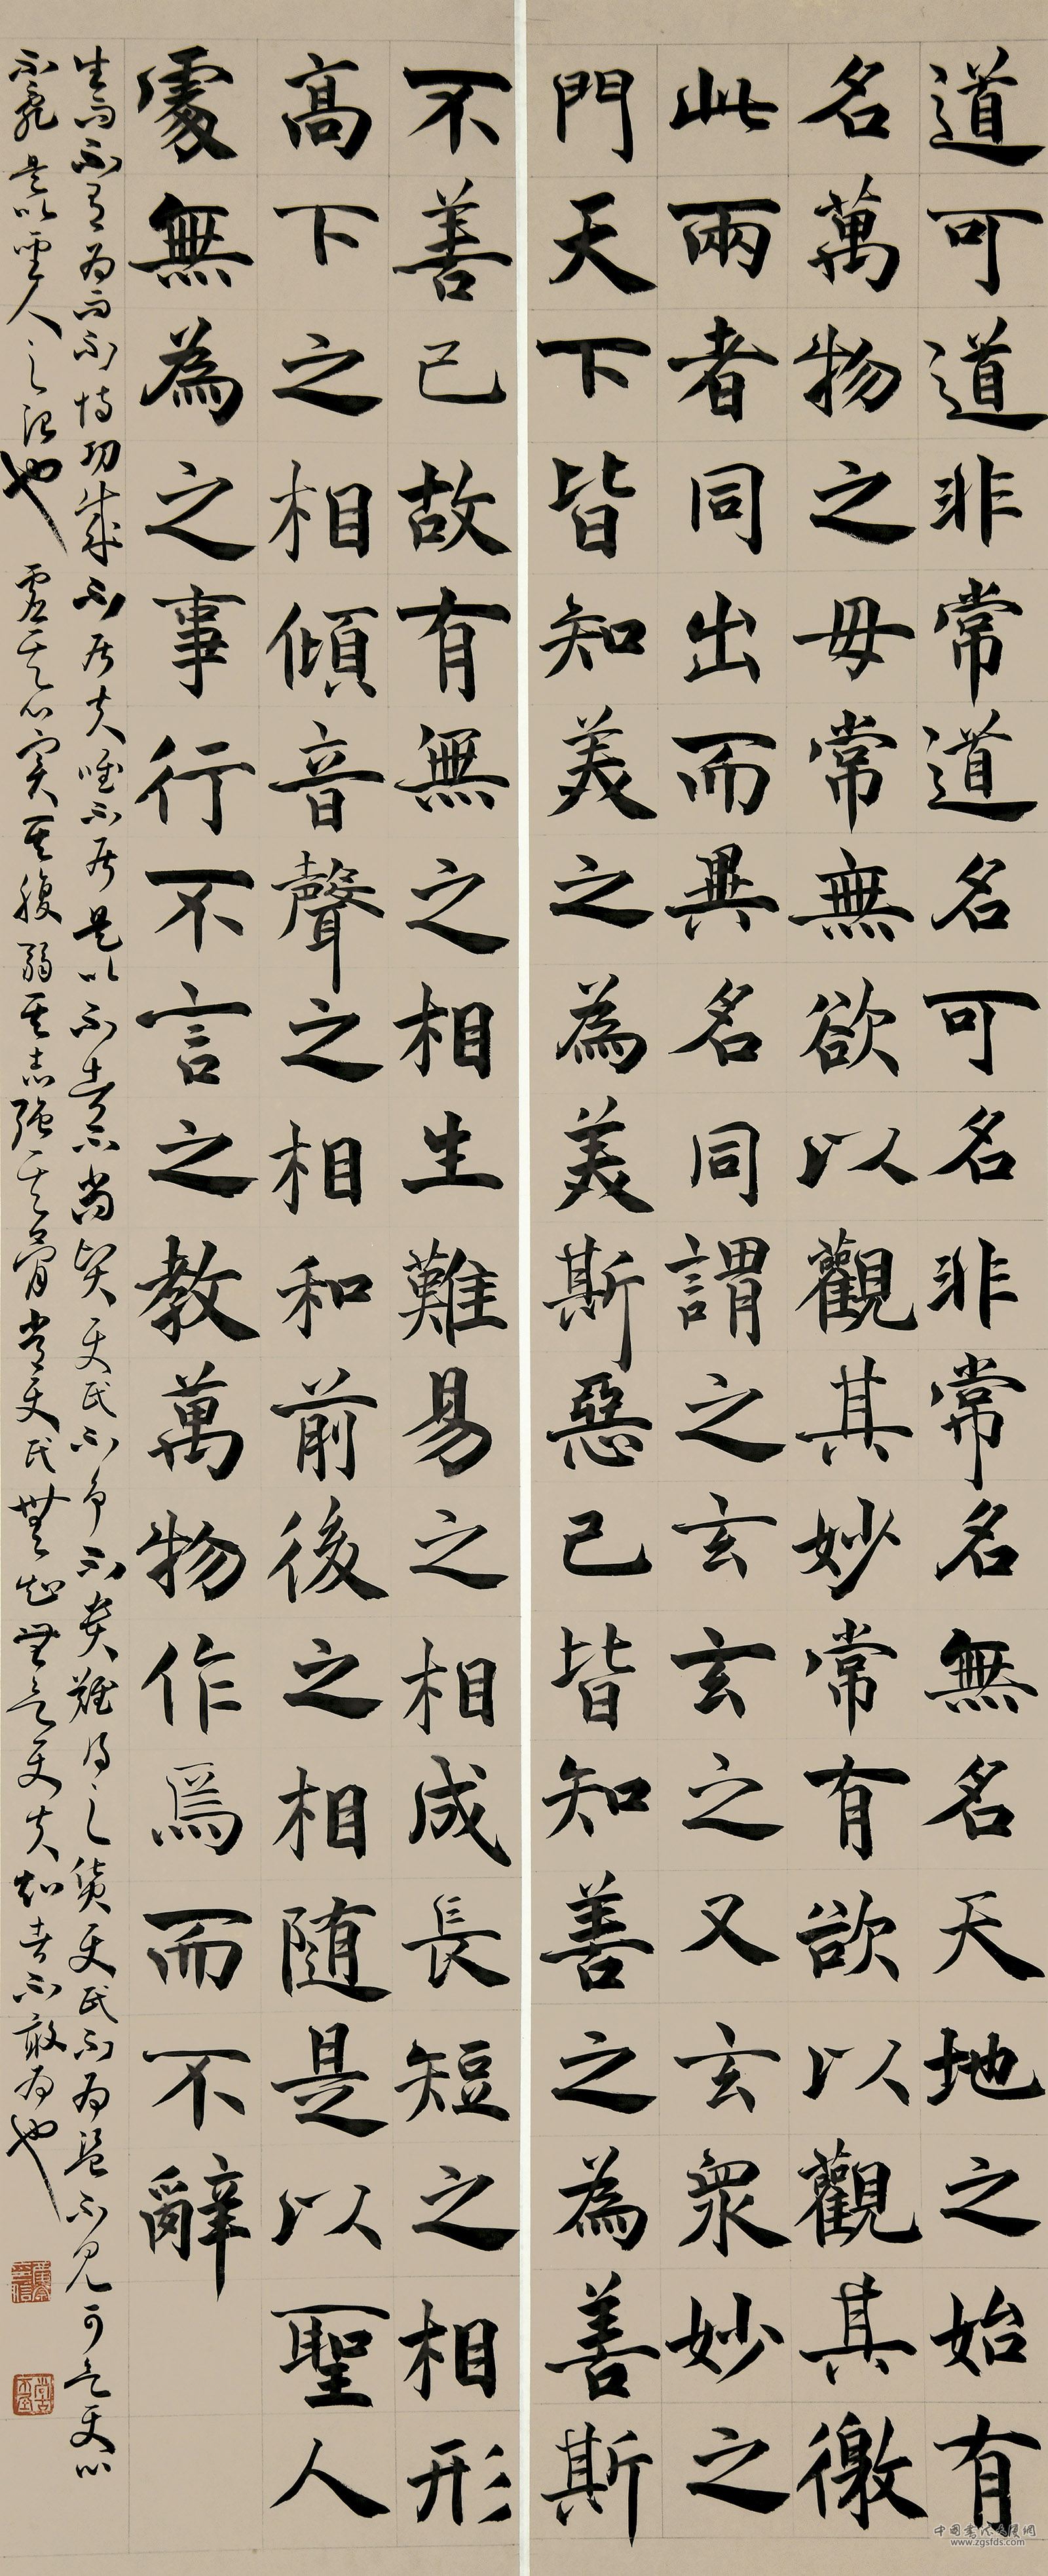 道可道非常道名可名非常名無名天地之始有
名萬物之母常無欲以觀其妙常有欲以觀其徼
此兩者同出而異名同謂之玄玄之又玄衆妙之
門天下皆知美之為美斯惡已皆知善之為善斯
不善已故有無之相生難易之相成長短之相形
高下之相傾音聲之相和前後之相随是以聖人
處無為之事行不言之教萬物作焉而不辭
生而不有為而不恃功成不居夫唯不居是以不去不尚賢使民不爭不貴難得之貨使民不為盜不見可欲使心
不亂是以聖人之治也 虛其心實其腹弱其志強其骨常使民無知無欲使夫知者不敢為也
www.zgsfds.com